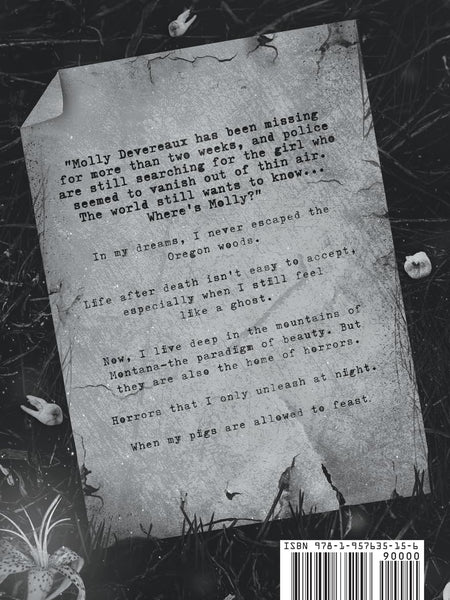 "Molly Devereaux has been missing
for more than two weeks, and police
are still searching for the girl who
seemed to vanish out of thin air.
The world still wants to know...
Where's Molly?"
In my dreams, I never escaped the
Oregon woods.
Life after death isn't easy to accept,
especially when I still feel
like a ghost.
Now, I live deep in the mountains of
Montana—the paradigm of beauty. But
they are also the home of horrors.
Horrors that I only unleash at night.
When my pigs are allowed to feast.
ISBN 978-1-957635-15-6
90000